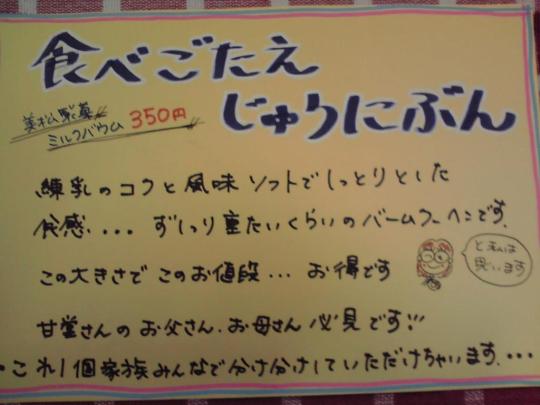 食べごたえ
じゅうにぶん
美松製菓
ミルクバウム 350円
練乳のコクと風味 ソフトでしっとりとした
食感.... ずっしり重たいくらいのバームクーヘンです.
この大きさで このお値段... お得です
と私は
思います
甘党さんの お父さん. お母さん 必見です!!
・これ1個家族みんなで分け分けしていただけちゃいます.・・・